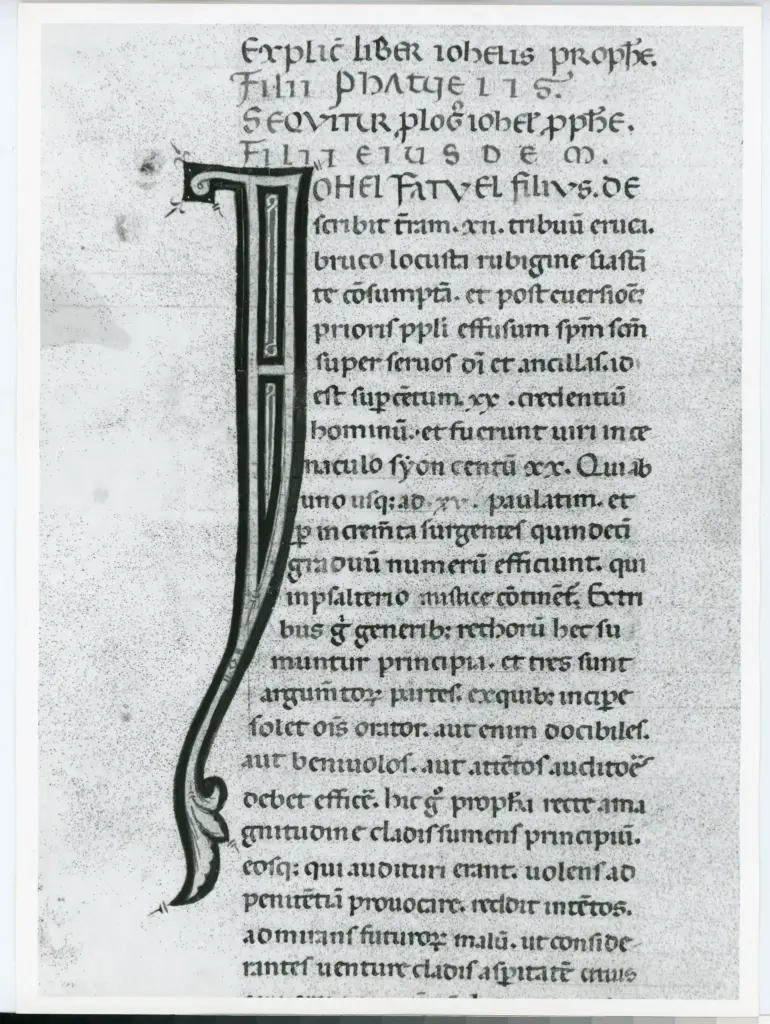 Explic̄ liber iohelis prophe.
Filii phatuelis.
Sequitur plog̊ iohel pphe.
Filii eiusdem.
IOHEL FATVEL filius. DE
scribit t̄ram. xii. tribuū eruci.
bruco locusta rubigine uastā
te cōsumptā. et post euersioē
prioris ppli effusum spm̄ scm̄
super seruos dī et ancillas. id
est sup cētum. xx. credentiū
hominū. et fuerunt uiri in ce
naculo syon centū xx. Qui ab
uno usq; ad .xv. paulatim. et
p increm̄ta surgentes quindeci
graduū numerū efficiunt. qui
in psalterio mistice cōtinēt̄. Ex tri
bus g̊ generib; rethorū hec su
muntur principia. et tres sunt
argum̄toꝝ partes. ex quib; incipe
solet oīs orator. aut enim docibiles.
aut beniuolos. aut attētos auditoē
debet efficē. hic g̊ propha recte a ma
gnitudine cladis sumens principiū.
eosq; qui audituri erant. uolens ad
penitētiā prouocare. reddit intētos.
admirans futuroꝝ malū. ut conside
rantes uenture cladis aspitatē cuius